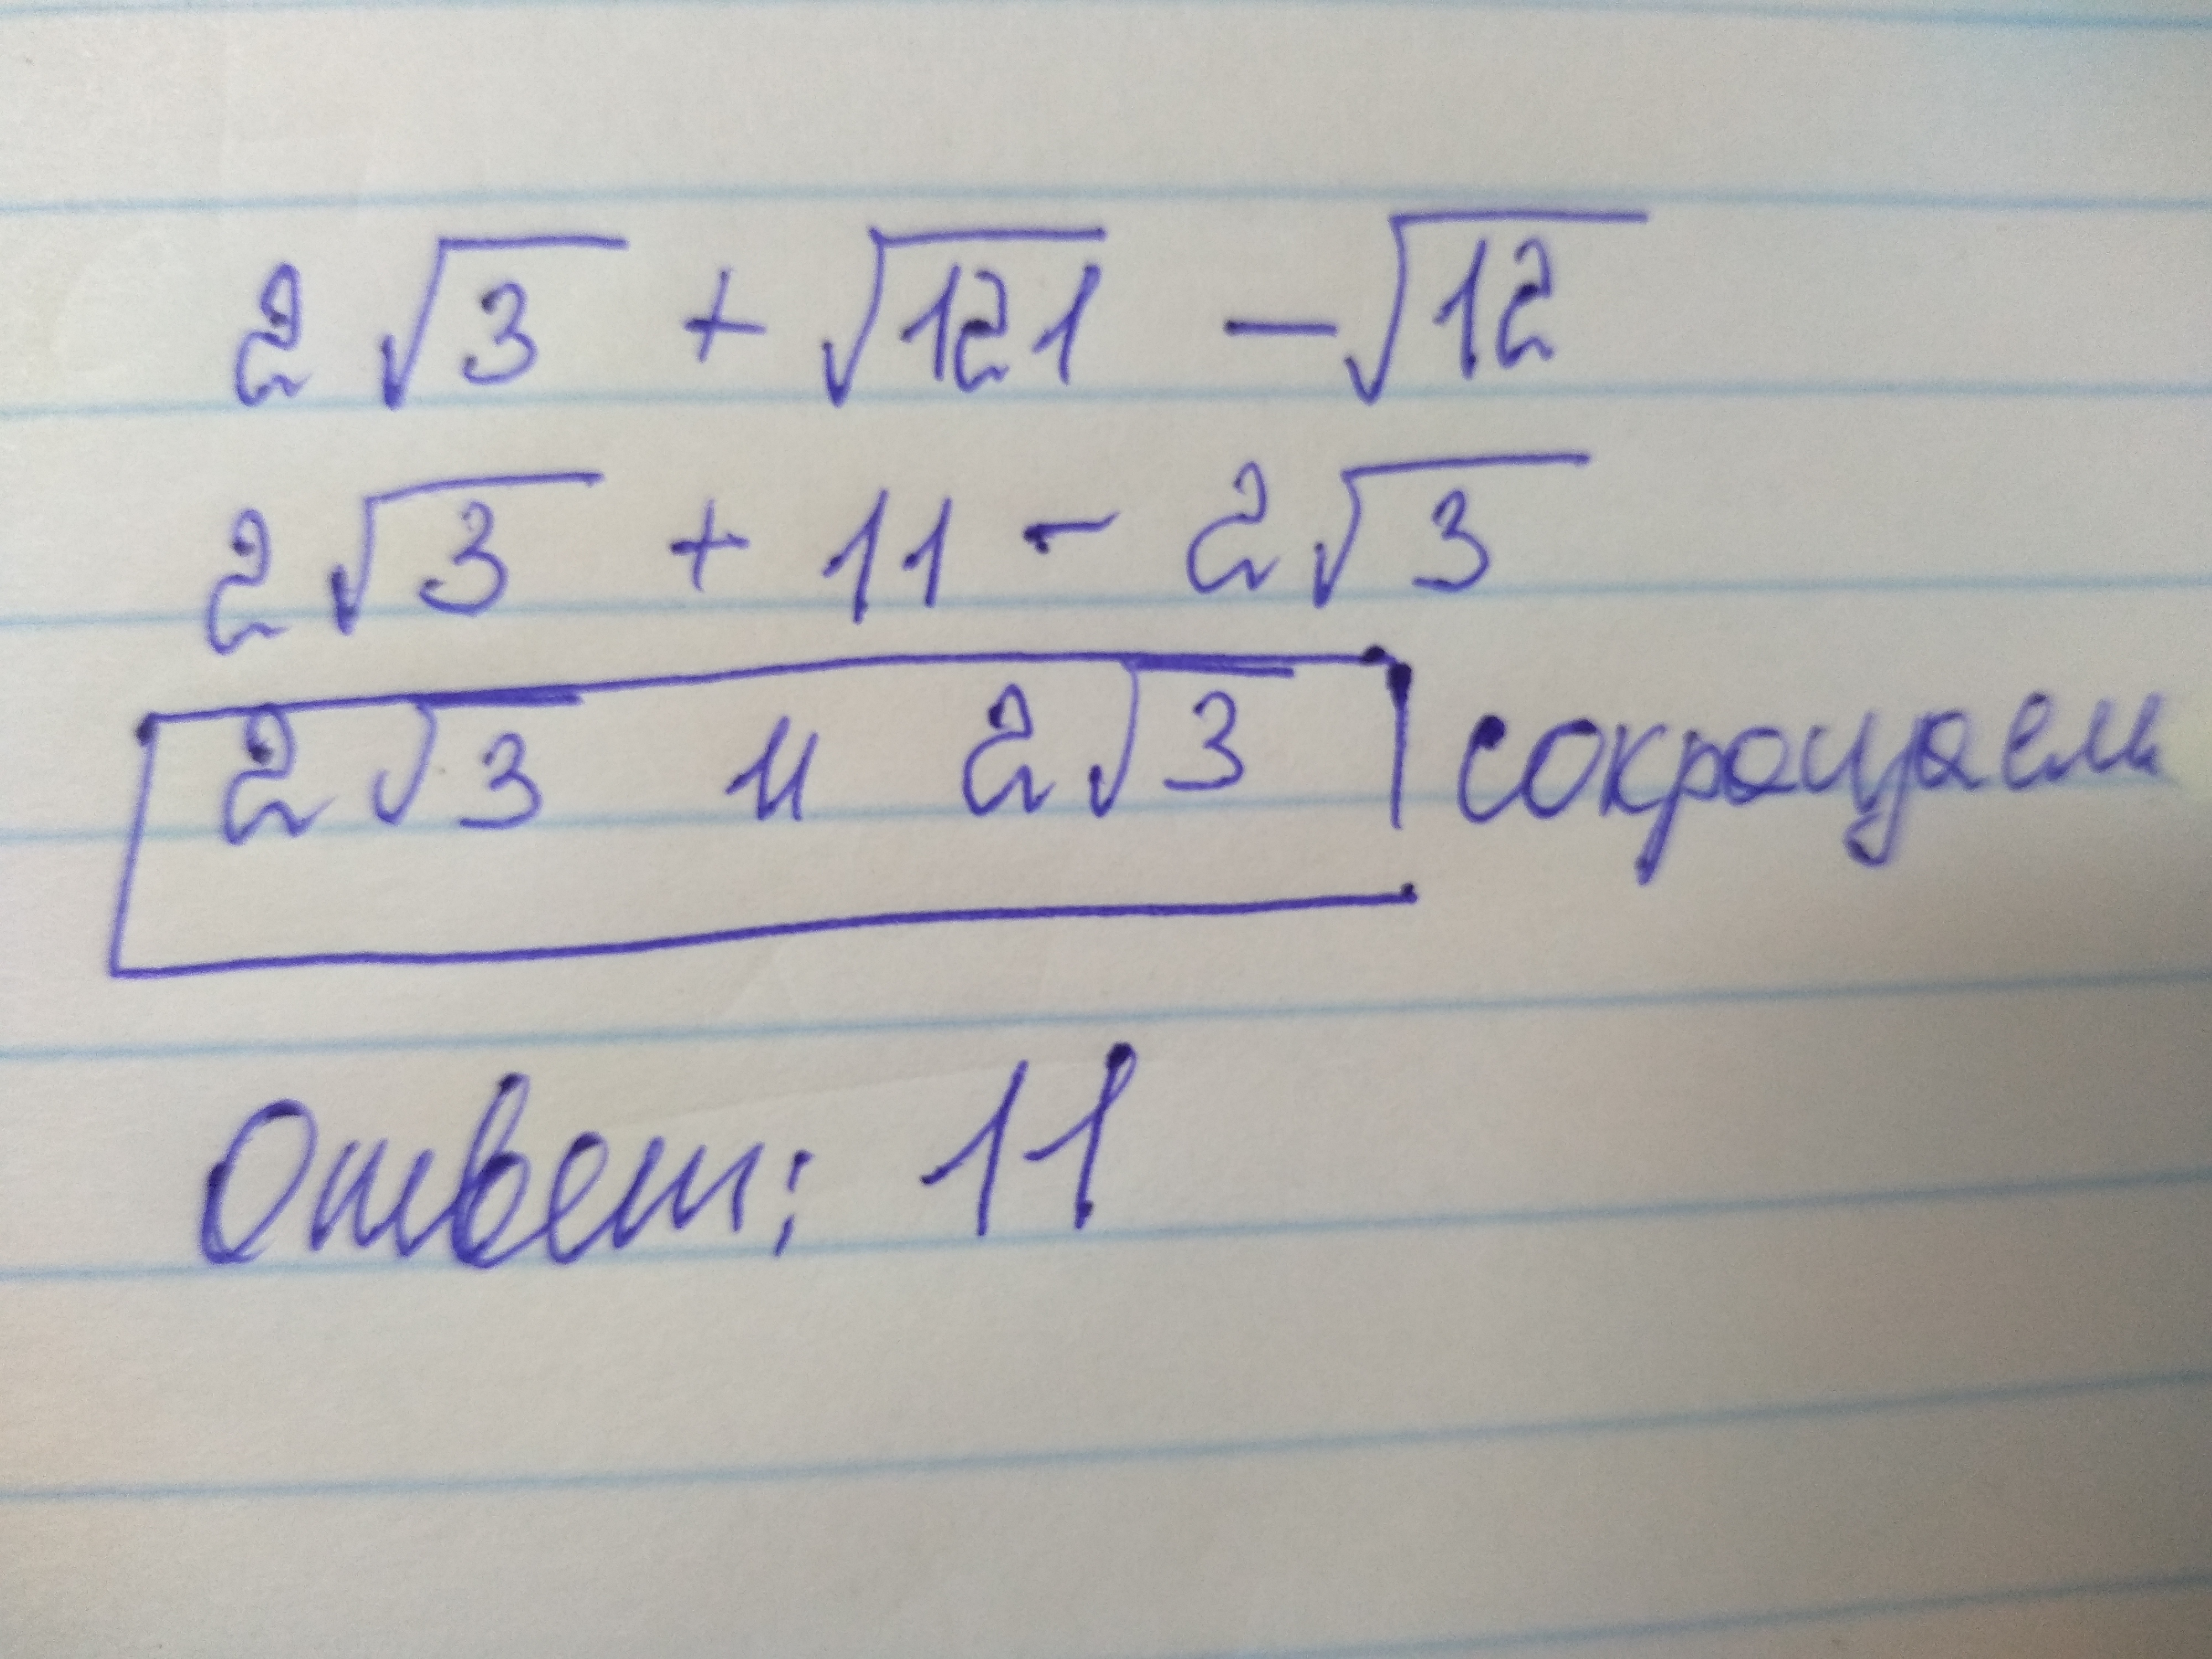 2√3 + √121 - √12
2√3 + 11 - 2√3
2√3 и 2√3 сокращаем
Ответ: 11